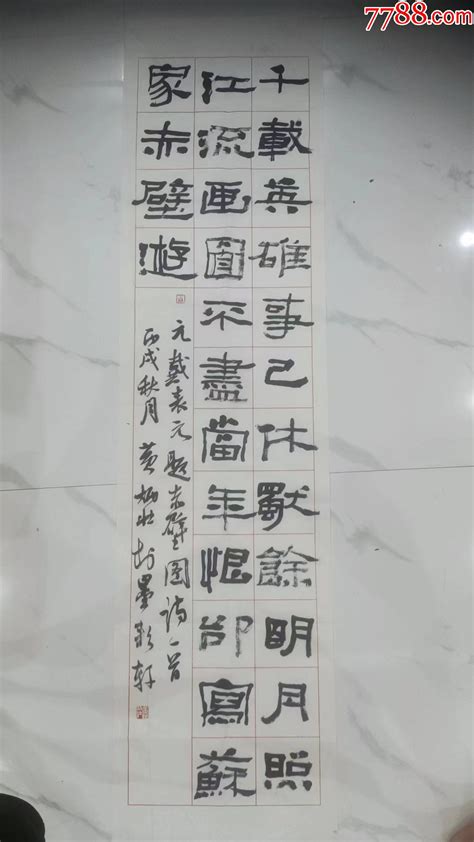 7788.com
千載英雄事已休獨餘明月照
江流画圖不盡當年恨却寫蘇
家赤壁遊
元戴表元題赤壁圖詩一首
丙戌秋月 黄炳壮於墨軒